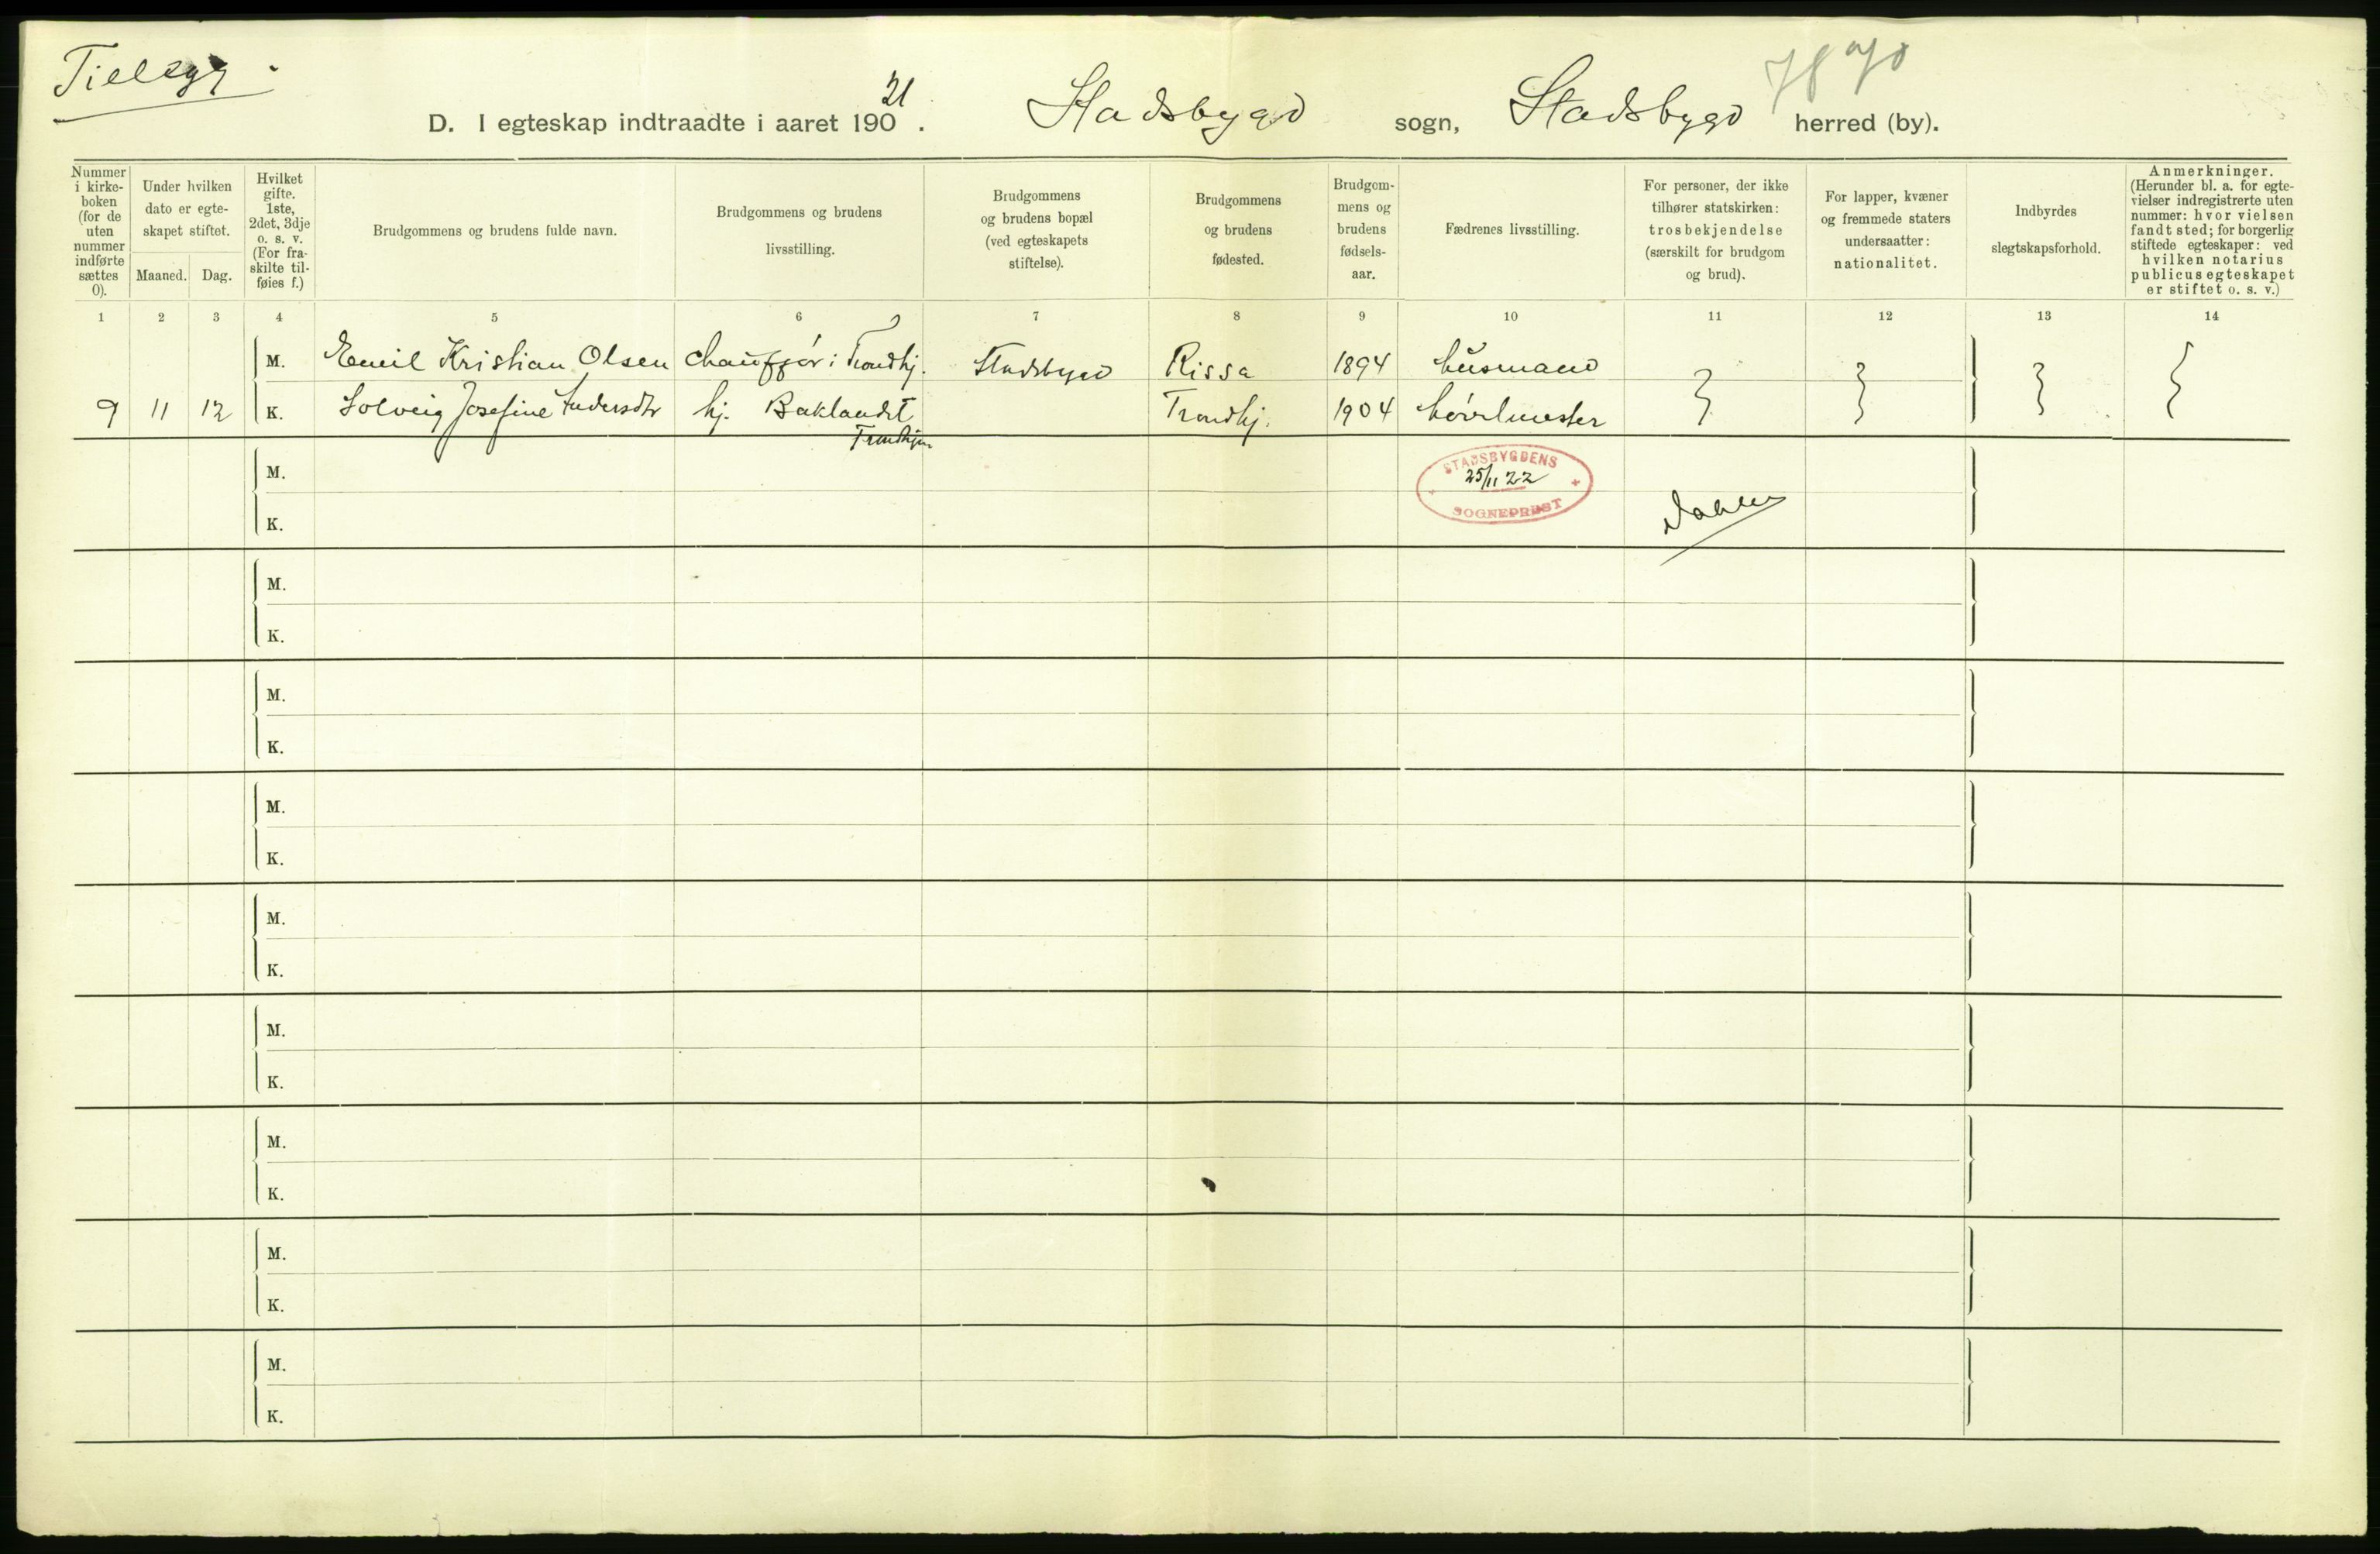 Tillegg.
78 90
D. I egteskap indtraadte i aaret 190 21. Stadsbygd sogn, Stadsbygd herred (by).
Nummer i kirke-boken (for de uten nummer indførte sættes 0).
Under hvilken dato er egte-skapet stiftet.
Maaned. Dag.
Hvilket gifte. 1ste, 2det, 3dje o. s. v. (For fra-skilte til-føies f.)
Brudgommens og brudens fulde navn.
Brudgommens og brudens livsstilling.
Brudgommens og brudens bopæl (ved egteskapets stiftelse).
Brudgommens og brudens fødested.
Brudgom-mens og brudens fødsels-aar.
Fædrenes livsstilling.
For personer, der ikke tilhører statskirken: trosbekjendelse (særskilt for brudgom og brud).
For lapper, kvæner og fremmede staters undersaatter: nationalitet.
Indbyrdes slegtskapsforhold.
Anmerkninger. (Herunder bl. a. for egte-vielser indregistrerte uten nummer: hvor vielsen fandt sted; for borgerlig stiftede egteskaper: ved hvilken notarius publicus egteskapet er stiftet o. s. v.)
1 2 3 4 5 6 7 8 9 10 11 12 13 14
M. Emil Kristian Olsen chauffør i Trondhj. Stadsbygd Rissa 1894 husmand
9 11 12 K. Solveig Josefine Andersdtr hj. Baklandet Trondhj. 1904 
Trondhjem
M.
STADSBYGDENS
25/11 22
SOGNEPREST
K.
M.
K.
M.
K.
M.
K.
M.
K.
M.
K.
M.
K.
M.
K.
M.
K.